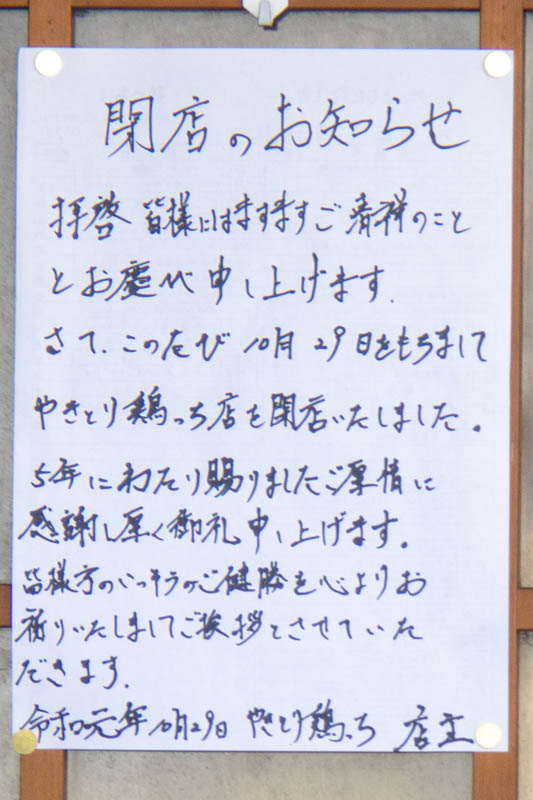 閉店のお知らせ
拝啓 皆様にはますますご清祥のこと
とお慶び申し上げます.
さて、このたび 10月29日をもちまして
やきとり鶏っち店を閉店いたしました。
5年にわたり賜りましたご厚情に
感謝し厚く御礼申し上げます。
皆様方のいっそうのご健勝を心よりお
祈りいたしましてご挨拶とさせていた
だきます.
令和元年10月29日 やきとり鶏っち 店主